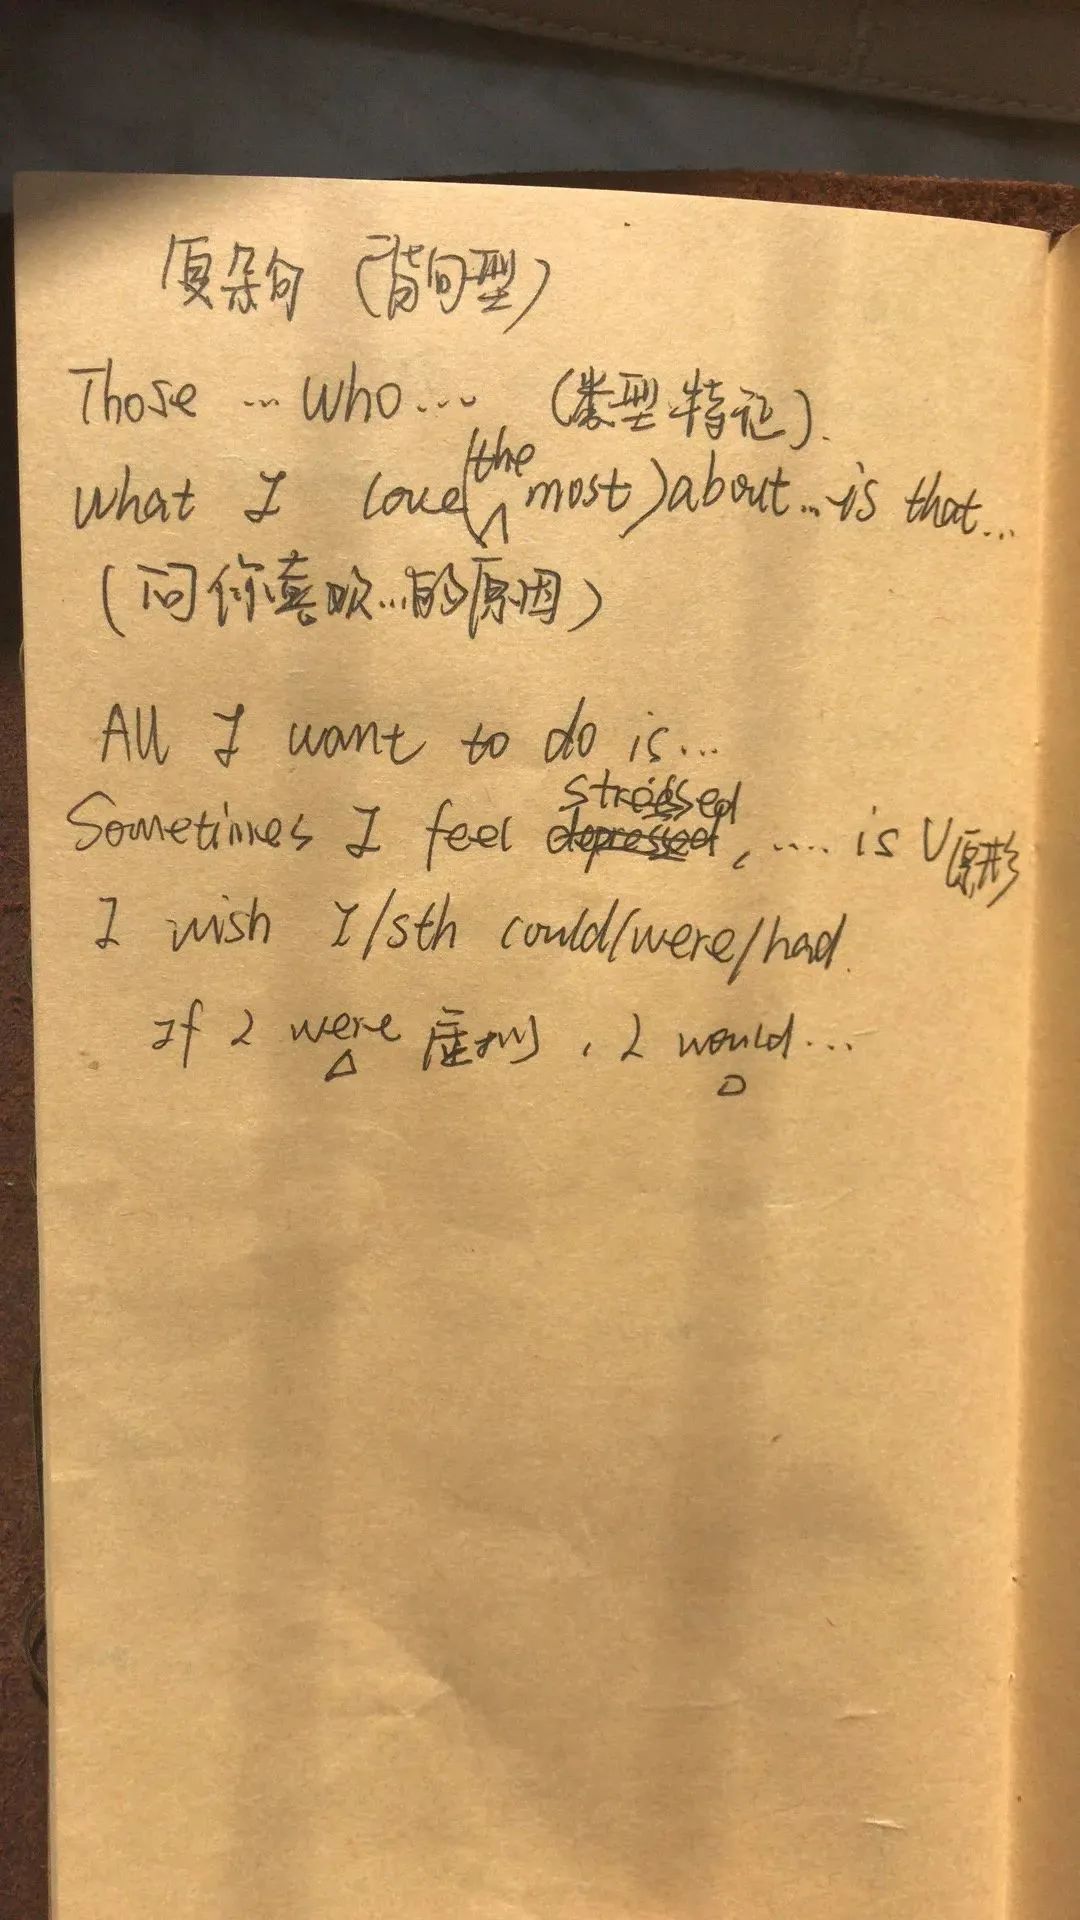 复杂句 (背句型)
Those ... who ... (类型.特征).
What I love (the most) about ... is that ...
(问你喜欢...的原因)
All I want to do is...
Sometimes I feel stressed, .... is V原形
I wish I/sth could/were/had.
If I were 虚拟, I would...